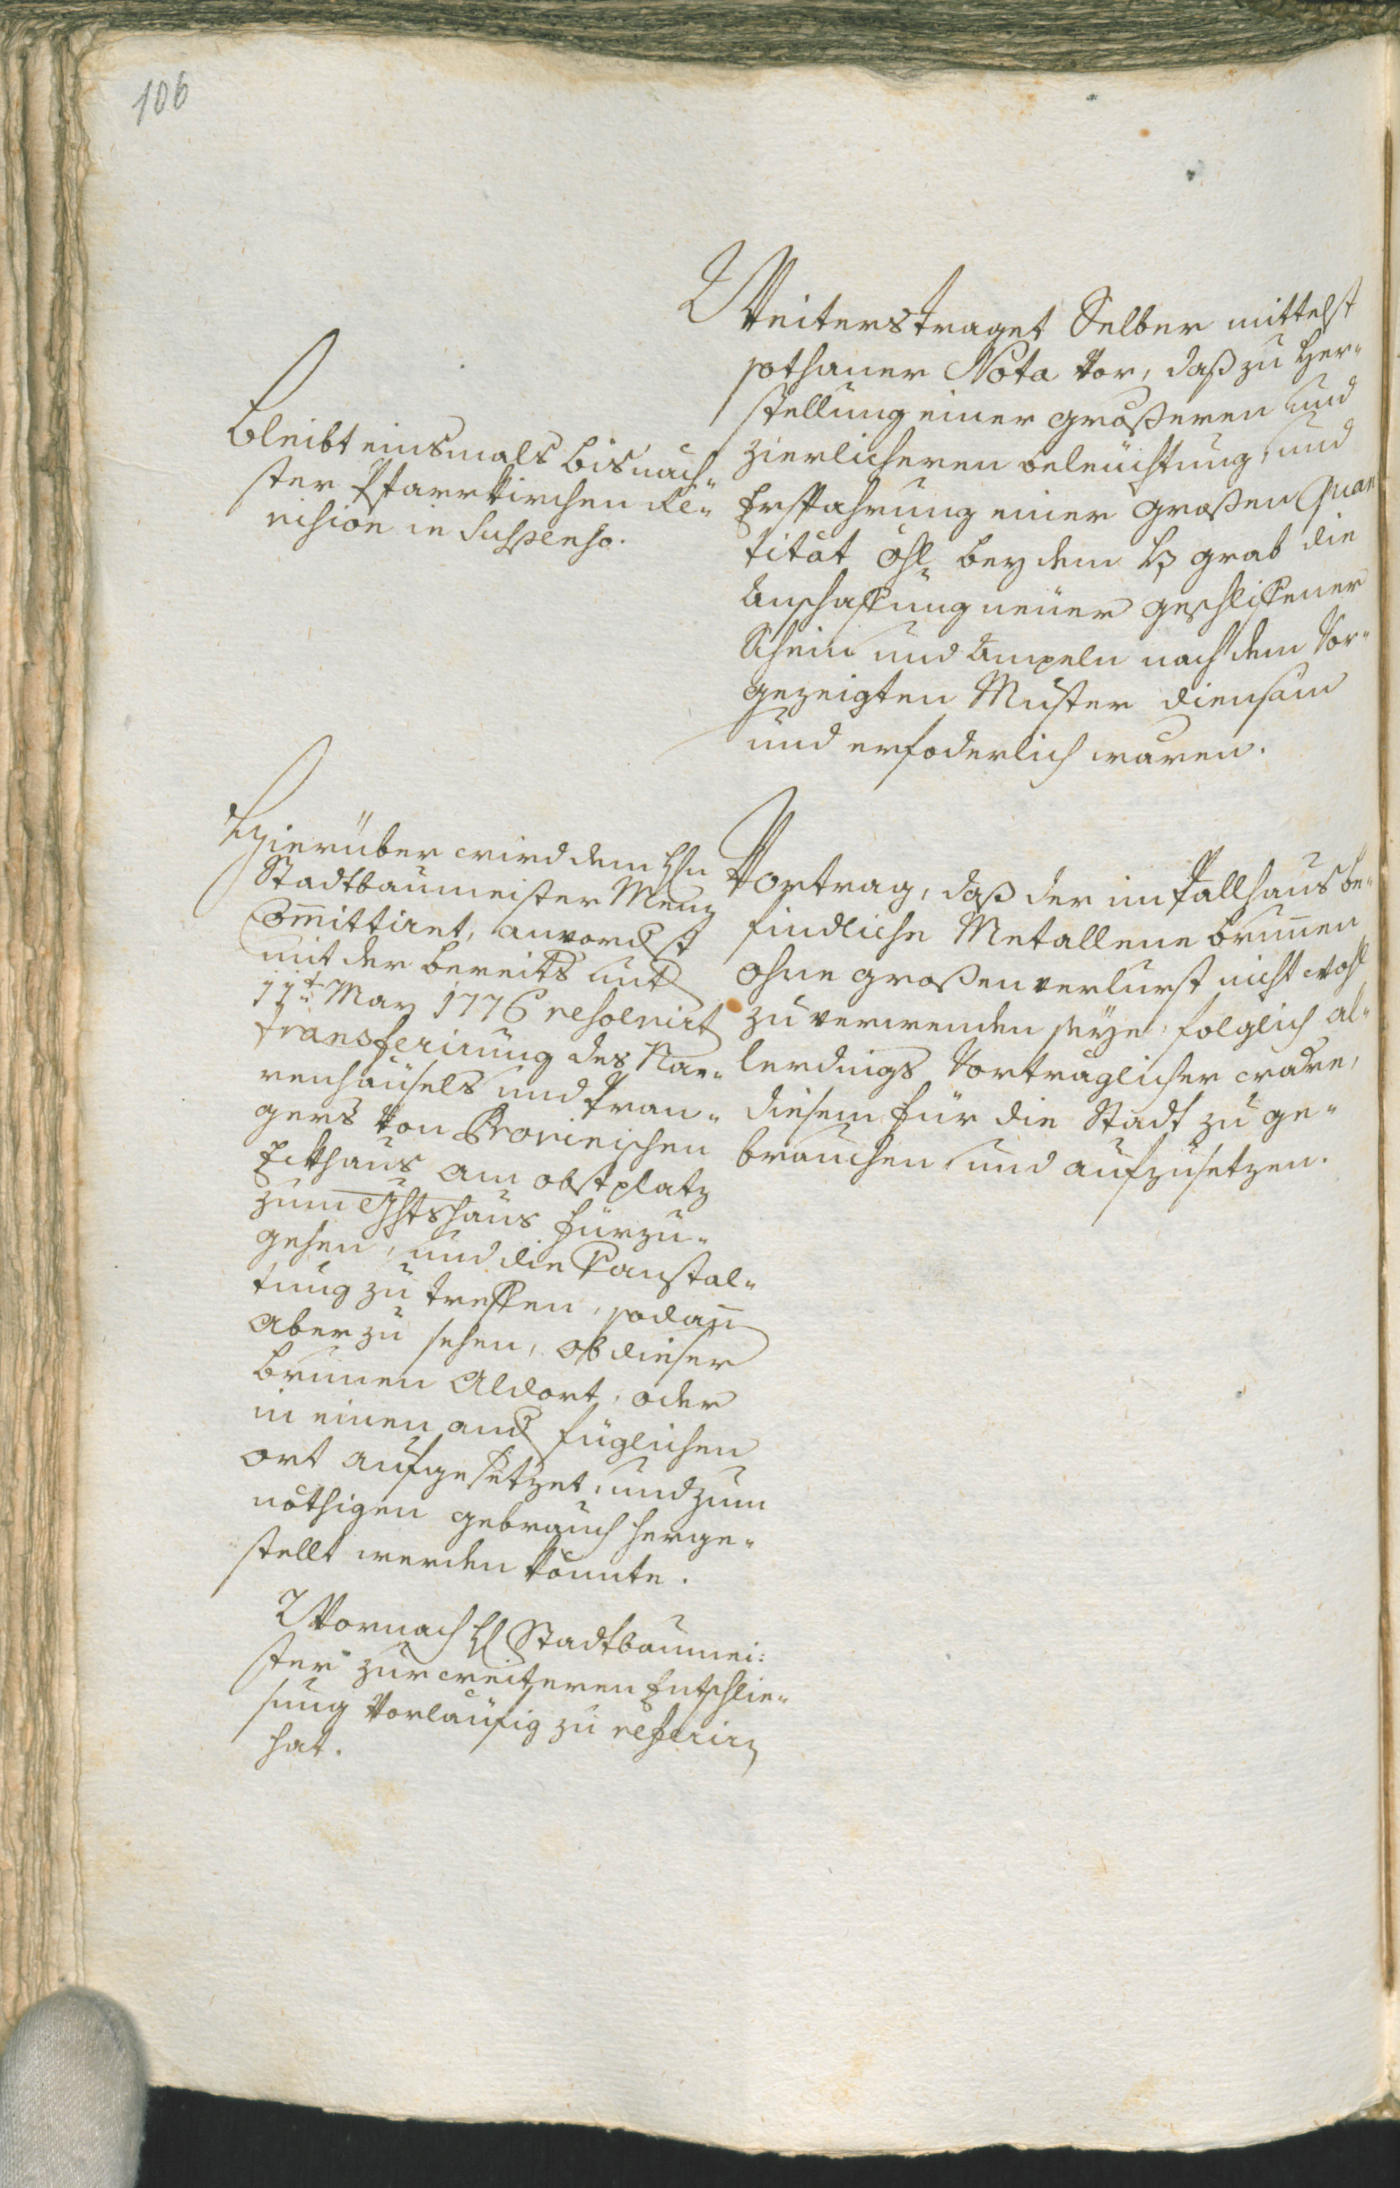 106
Weiters traget Selber mittelst
sothaner Nota vor, daß zu Her-
stellung einer größeren und
zierlicheren beleüchtung, und
Ersparung einer großen Quan
tität öhl bey dem h grab die
Anschaffung neüer geschliffener
Schein und Ampeln nach dem vor-
gezeigten Muster diensam
und erfoderlich wären.
Bleibt einsmals bis näch-
ster Pfarrkirchen Re-
vision in Suspenso.
Vortrag, daß der im Fallhaus be-
findliche Metallene brunnen
ohne großen verlurst nicht wohl
zu verwenden seye, folglich al-
lerdings vorträglicher wäre,
diesem für die Stadt zu ge-
brauchen und aufzusetzen.
Hierüber wird dem Hn
Stadtbaumeister Menz
Committirt, anvorderst
mit der bereits unt
11t May 1776 resolvirt
transferirung des Nar-
renhäusels und Pran-
gers von Provinischen
Eckhaus am obstplatz
zum Ghtshaus fürzu-
gehen, und die Vanstal-
tung zu treffen, sodann
aber zu sehen, ob dieser
brunen Aldort, oder
in einen and füglichen
ort aufgesetzet, und zum
nöthigen gebrauch herge-
stellt werden könnte.
Wornach H Stadtbaumei-
ster zur weiteren Entschlie-
sung vorläufig zu referirn
hat.